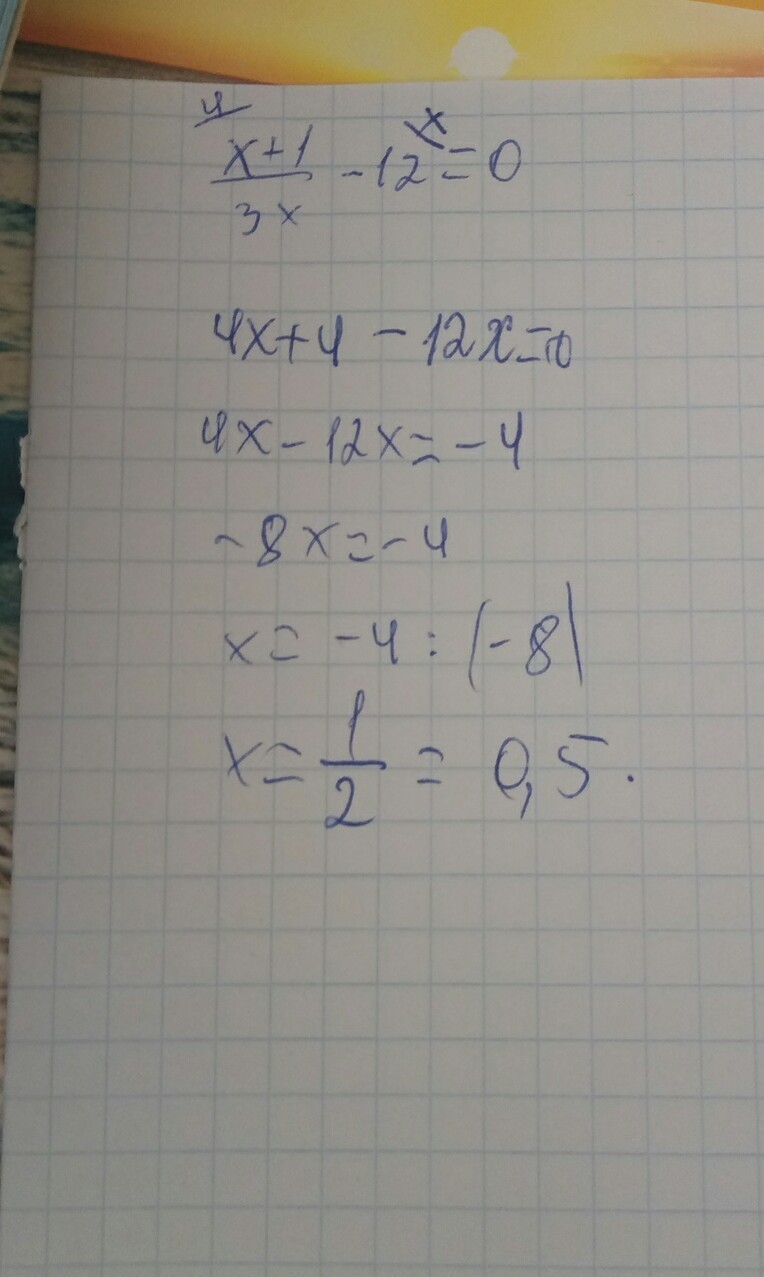 4 x
x+1/3x - 12 = 0
4x+4 - 12x=0
4x - 12x = -4
-8x = -4
x = -4 : (-8)
x = 1/2 = 0,5.